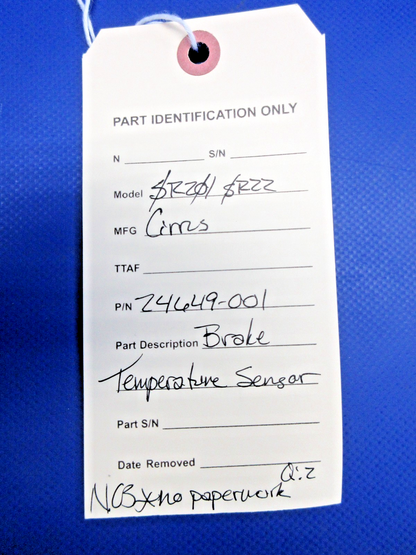 PART IDENTIFICATION ONLY
N ________ S/N ________
Model SR20/ SR22
MFG Cirrus
TTAF ________
P/N 24649-001
Part Description Brake
Temperature Sensor
Part S/N ________
Date Removed ________
Q:2
NOS no paperwork